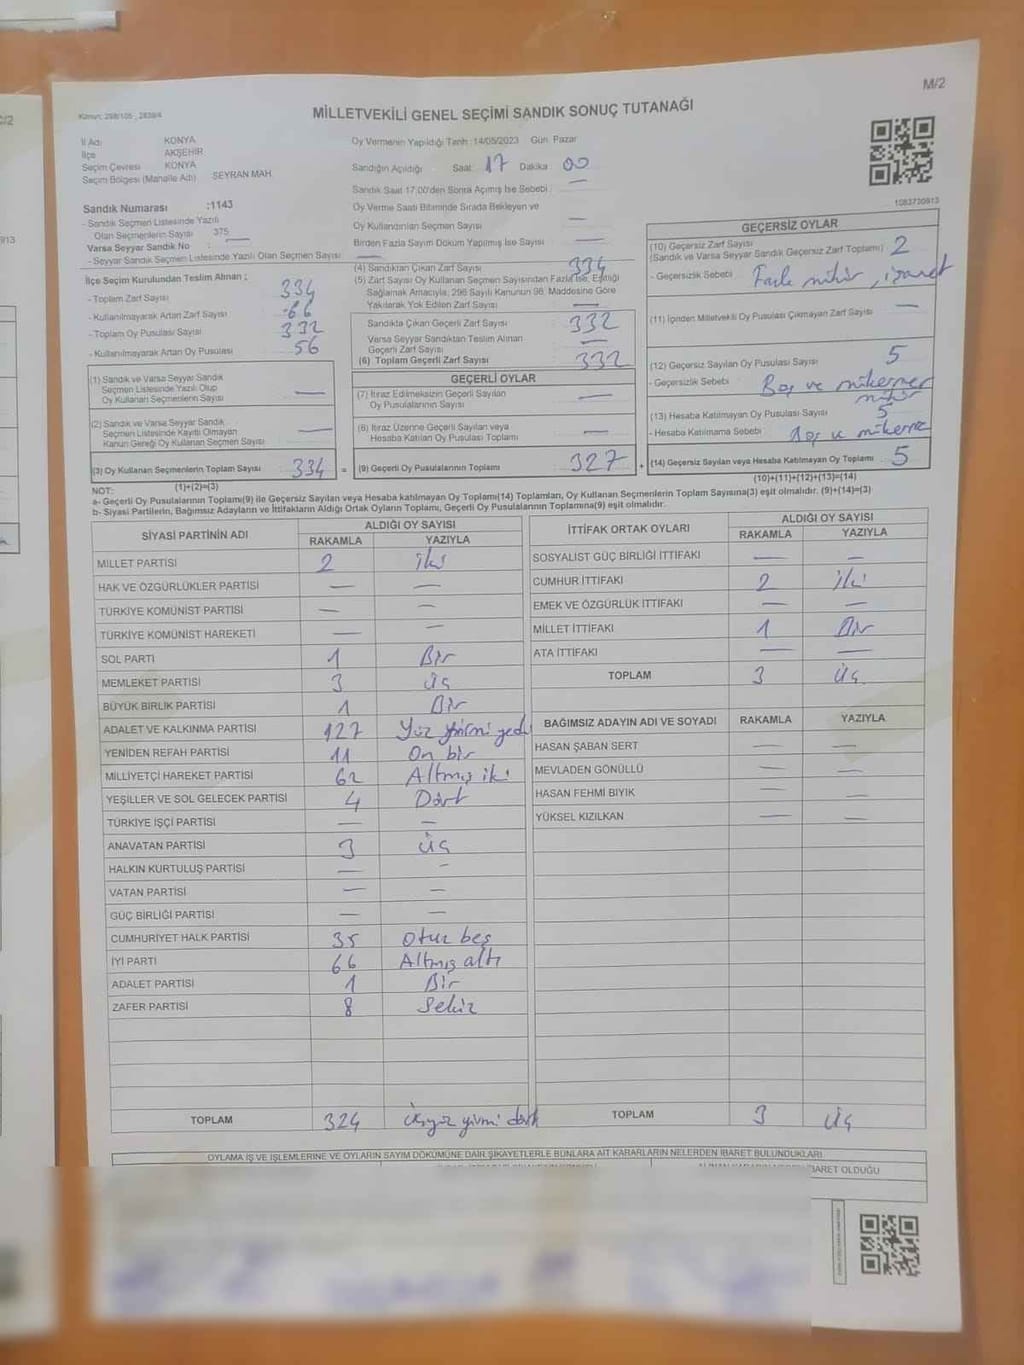 M/2
Kanun: 298/105 , 2839/4
MİLLETVEKİLİ GENEL SEÇİMİ SANDIK SONUÇ TUTANAĞI
İl Adı KONYA
İlçe AKŞEHİR
Seçim Çevresi KONYA
Seçim Bölgesi (Mahalle Adı) SEYRAN MAH.
Sandık Numarası :1143
- Sandık Seçmen Listesinde Yazılı
Olan Seçmenlerin Sayısı 375
Varsa Seyyar Sandık No : —
- Seyyar Sandık Seçmen Listesinde Yazılı Olan Seçmen Sayısı —
İlçe Seçim Kurulundan Teslim Alınan ;
- Toplam Zarf Sayısı 334
- Kullanılmayarak Artan Zarf Sayısı 66
- Toplam Oy Pusulası Sayısı 332
- Kullanılmayarak Artan Oy Pusulası 56
(1) Sandık ve Varsa Seyyar Sandık
Seçmen Listesinde Yazılı Olup
Oy Kullanan Seçmenlerin Sayısı —
(2) Sandık ve Varsa Seyyar Sandık
Seçmen Listesinde Kayıtlı Olmayan
Kanun Gereği Oy Kullanan Seçmen Sayısı —
(3) Oy Kullanan Seçmenlerin Toplam Sayısı 334 =
(1)+(2)=(3)
Oy Vermenin Yapıldığı Tarih :14/05/2023 Gün: Pazar
Sandığın Açıldığı Saat: 17 Dakika 00
Sandık Saat 17.00'den Sonra Açılmış İse Sebebi : —
Oy Verme Saati Bitiminde Sırada Bekleyen ve
Oy Kullandırılan Seçmen Sayısı —
Birden Fazla Sayım Döküm Yapılmış İse Sayısı —
(4) Sandıktan Çıkan Zarf Sayısı 334
(5) Zarf Sayısı Oy Kullanan Seçmen Sayısından Fazla İse, Eşitliği
Sağlamak Amacıyla, 298 Sayılı Kanunun 98. Maddesine Göre
Yakılarak Yok Edilen Zarf Sayısı —
Sandıkta Çıkan Geçerli Zarf Sayısı 332
Varsa Seyyar Sandıktan Teslim Alınan
Geçerli Zarf Sayısı —
(6) Toplam Geçerli Zarf Sayısı 332
GEÇERLİ OYLAR
(7) İtiraz Edilmeksizin Geçerli Sayılan
Oy Pusulalarının Sayısı —
(8) İtiraz Üzerine Geçerli Sayılan veya
Hesaba Katılan Oy Pusulası Toplamı —
(9) Geçerli Oy Pusulalarının Toplamı 327 +
1083730913
GEÇERSİZ OYLAR
(10) Geçersiz Zarf Sayısı 2
(Sandık ve Varsa Seyyar Sandık Geçersiz Zarf Toplamı)
- Geçersizlik Sebebi Fazla mühür, işaret
(11) İçinden Milletvekili Oy Pusulası Çıkmayan Zarf Sayısı —
(12) Geçersiz Sayılan Oy Pusulası Sayısı 5
- Geçersizlik Sebebi Boş ve mükerrer
mühür
(13) Hesaba Katılmayan Oy Pusulası Sayısı 5
- Hesaba Katılmama Sebebi Boş ve mükerrer
(14) Geçersiz Sayılan veya Hesaba Katılmayan Oy Toplamı 5
(10)+(11)+(12)+(13)=(14)
NOT:
a- Geçerli Oy Pusulalarının Toplamı(9) ile Geçersiz Sayılan veya Hesaba katılmayan Oy Toplamı(14) Toplamları, Oy Kullanan Seçmenlerin Toplam Sayısına(3) eşit olmalıdır. (9)+(14)=(3)
b- Siyasi Partilerin, Bağımsız Adayların ve İttifakların Aldığı Ortak Oyların Toplamı, Geçerli Oy Pusulalarının Toplamına(9) eşit olmalıdır.
SİYASİ PARTİNİN ADI ALDIĞI OY SAYISI
RAKAMLA YAZIYLA
MİLLET PARTİSİ 2 iki
HAK VE ÖZGÜRLÜKLER PARTİSİ — —
TÜRKİYE KOMÜNİST PARTİSİ — —
TÜRKİYE KOMÜNİST HAREKETİ — —
SOL PARTİ 1 Bir
MEMLEKET PARTİSİ 3 üç
BÜYÜK BİRLİK PARTİSİ 1 Bir
ADALET VE KALKINMA PARTİSİ 127 Yüz yirmi yedi
YENİDEN REFAH PARTİSİ 11 On bir
MİLLİYETÇİ HAREKET PARTİSİ 62 Altmış iki
YEŞİLLER VE SOL GELECEK PARTİSİ 4 Dört
TÜRKİYE İŞÇİ PARTİSİ — —
ANAVATAN PARTİSİ 3 üç
HALKIN KURTULUŞ PARTİSİ — —
VATAN PARTİSİ — —
GÜÇ BİRLİĞİ PARTİSİ — —
CUMHURİYET HALK PARTİSİ 35 otuz beş
İYİ PARTİ 66 Altmış altı
ADALET PARTİSİ 1 Bir
ZAFER PARTİSİ 8 Sekiz
TOPLAM 324 üçyüz yirmi dört
İTTİFAK ORTAK OYLARI ALDIĞI OY SAYISI
RAKAMLA YAZIYLA
SOSYALIST GÜÇ BİRLİĞİ İTTİFAKI — —
CUMHUR İTTİFAKI 2 iki
EMEK VE ÖZGÜRLÜK İTTİFAKI — —
MİLLET İTTİFAKI 1 Bir
ATA İTTİFAKI — —
TOPLAM 3 üç
BAĞIMSIZ ADAYIN ADI VE SOYADI RAKAMLA YAZIYLA
HASAN ŞABAN SERT — —
MEVLADEN GÖNÜLLÜ — —
HASAN FEHMİ BIYIK — —
YÜKSEL KIZILKAN — —
TOPLAM 3 üç
OYLAMA İŞ VE İŞLEMLERİNE VE OYLARIN SAYIM DÖKÜMÜNE DAİR ŞİKAYETLERLE BUNLARA AİT KARARLARIN NELERDEN İBARET BULUNDUKLARI
İBARET OLDUĞU